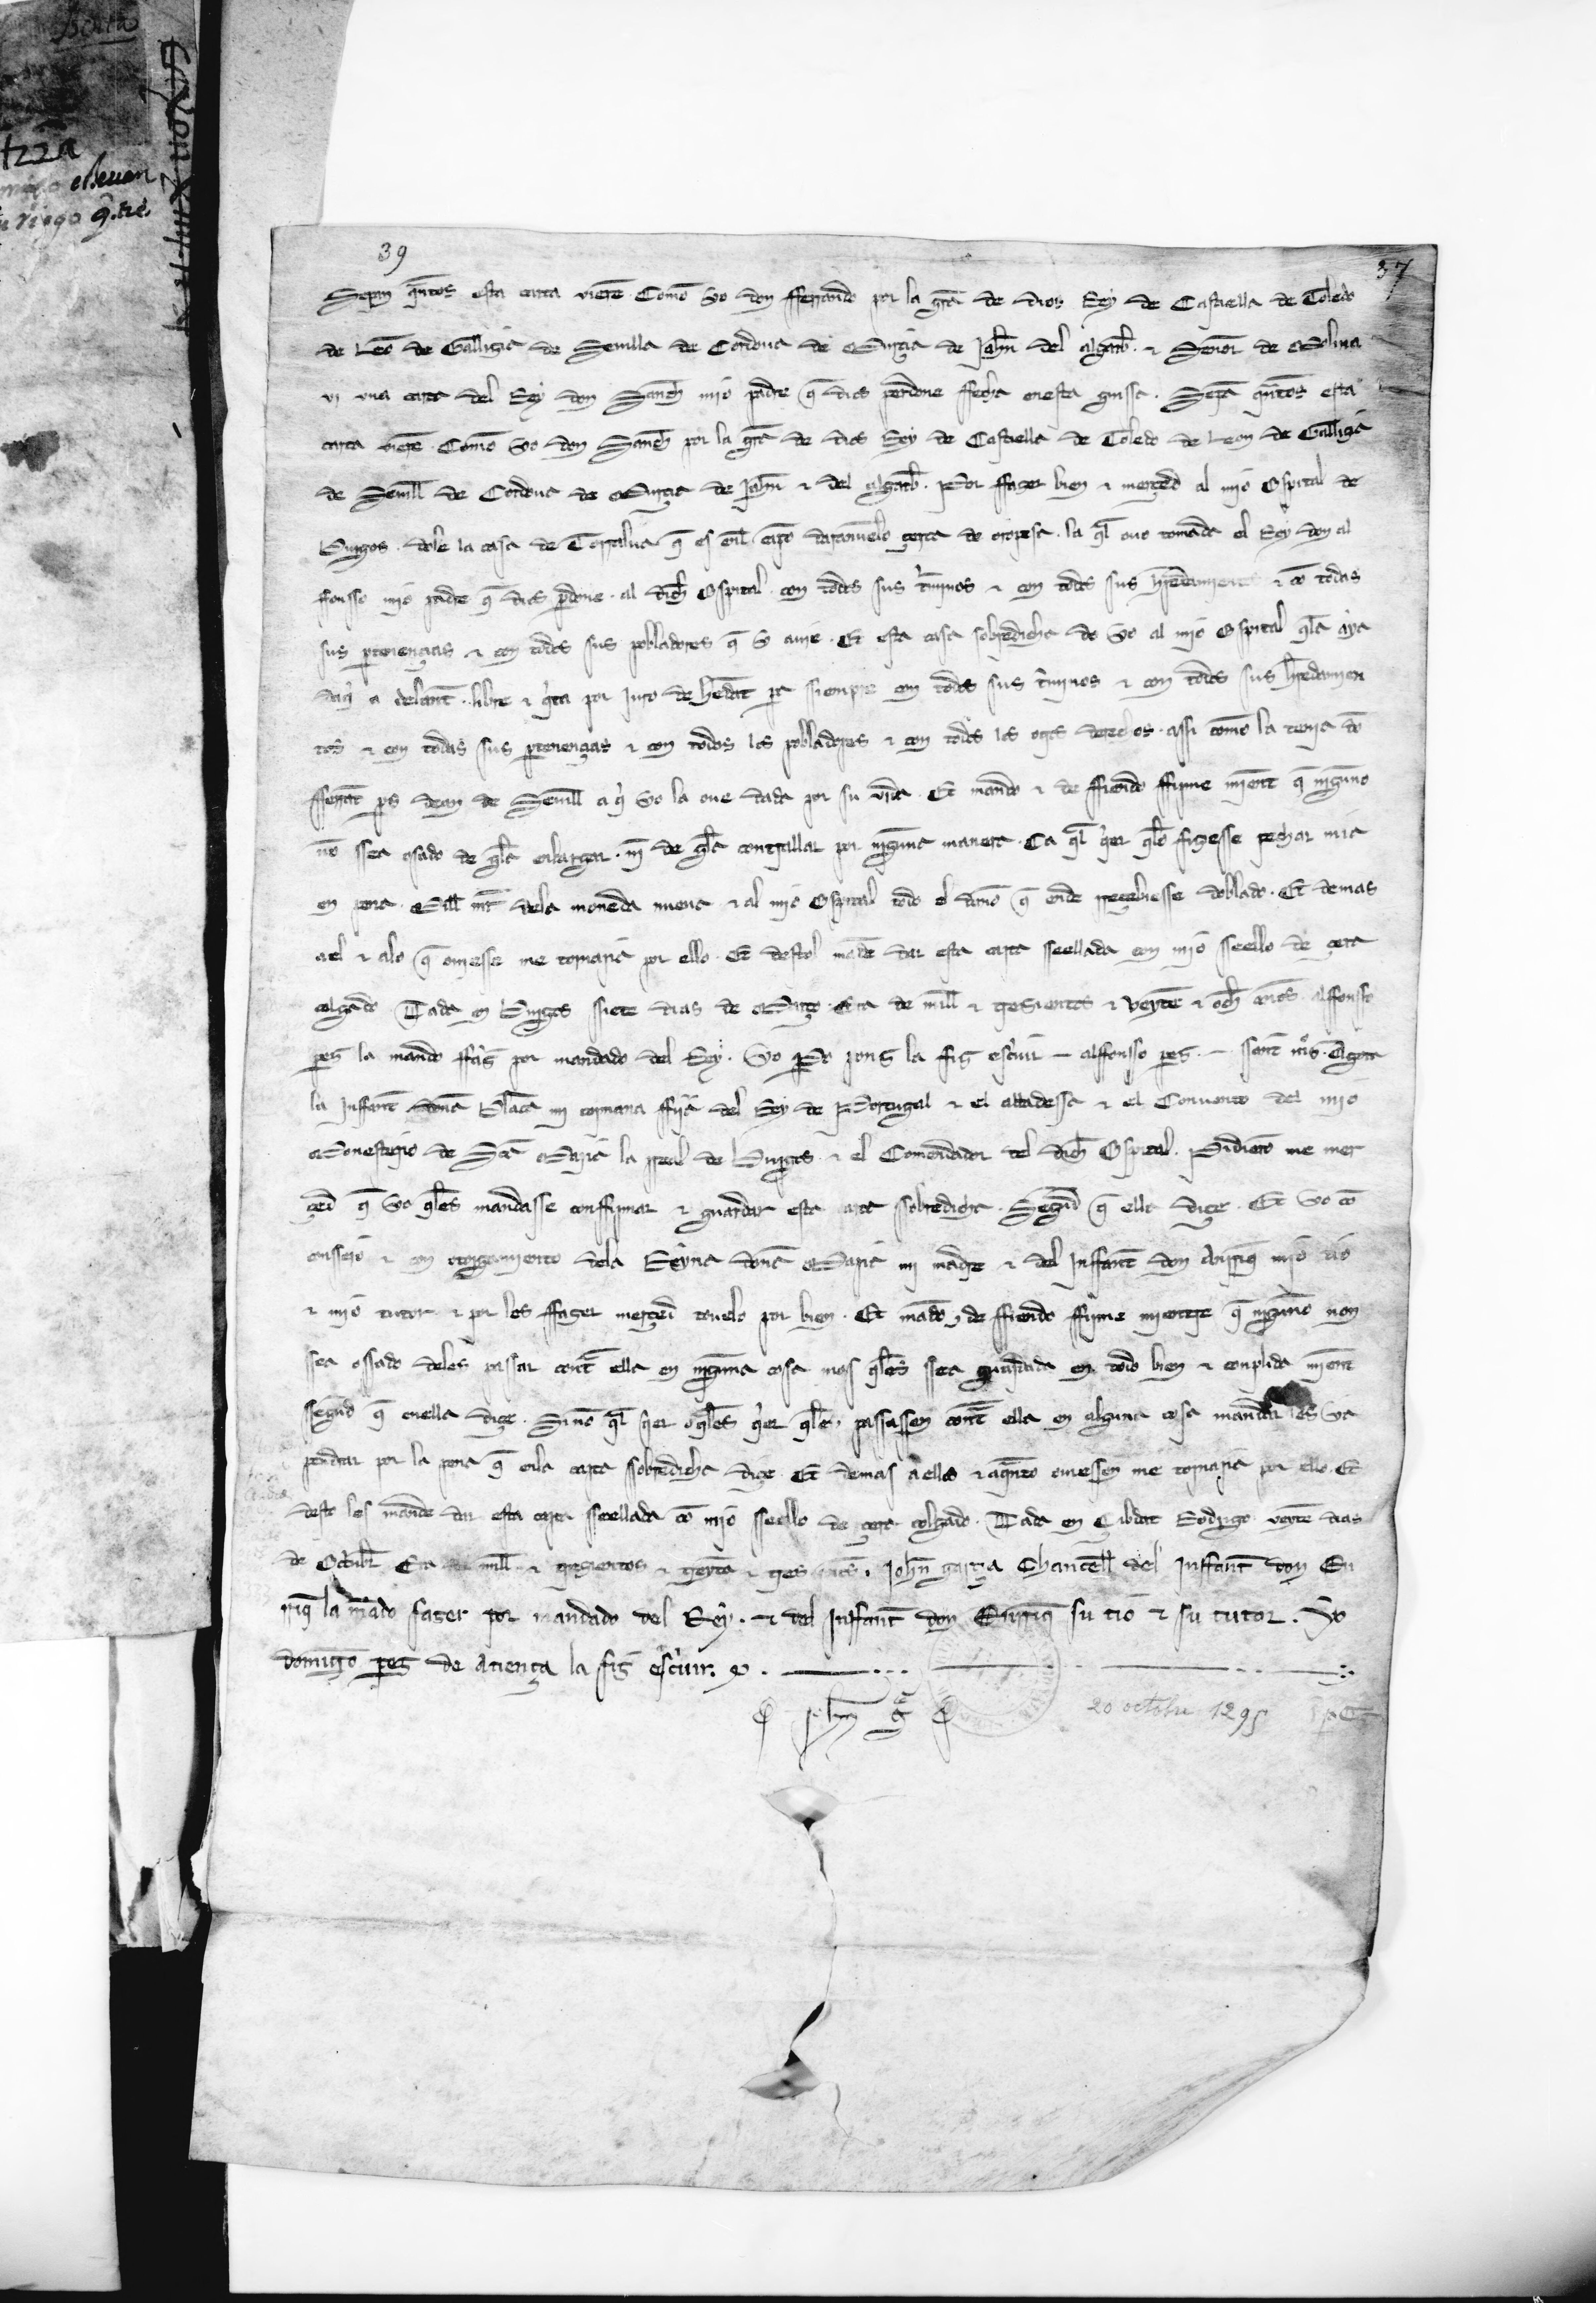 39
37
Sepan qntos esta carta vierē Como yo don fferrando por la grā de dios Rey de Castiella de Toledo
de Leō de Gallizia de Seuilla de Cordoua de Murçia de Jahn del algarb. & Señor de Molina
vi vna carta del Rey don Sancħ mio padre q̄ dios perdone ffecha en esta guissa. Sepā qntos esta
carta vierē. Como yo don Sancħ por la grā de dios Rey de Castiella de Toledo de Leon de Gallizia
de Seuill de Cordoua de Murçia de Jahn & del algarb. Por ffazer bien & merçed al mio Ospital de
Burgos. dole la casa de Torralua q̄ es enl canpo darannuelo çerca de oropesa. la ql ouo tomada el Rey don al
ffonsso mio padre q̄ dios pdone. al dicħ Ospital. con todos sus tminos & con todos sus hedamientos & cō todas
sus ptenençias & con todos sus pobladores q̄ y auie. Et esta casa sobredicha do yo al mio Ospital qla aya
daq̄ a delant. libre & qta por juro de hedat pa siempre con todos sus tminos & con todos sus hedamien
tos & con todas sus ptenençias & con todos los pobladores & con todos los otros derechos. assi como la tenia dō
fferrāt ps dean de Seuill a q̄ yo la oue dada por su vida. Et mando & de ffiendo ffirme mient q̄ ninguno
nō ssea osado de gela enbargar. nī de gela contrallar por ninguna manera. Ca ql qer qlo fiziesse pechar mie
en pena. Mill mr dela moneda nueua & al mio Ospital todo el daño q̄ ende rreçebiesse doblado. Et demas
a el & alo q̄ ouiesse me tornaria por ello. Et desto le māde dar esta carta seellada con mio seello de çera
colgado Dada en Burgos siete dias de Março. Era de mill & trezientos & veynte & ocħ años. Alffonsso
peƺ la mando ffaƺ por mandado del Rey. Yo Po
la fiƺ escuir — alffonsso peƺ. —
Agora
la Inffant doña Blāca mi cormana ffija del Rey de Portugal & el abbadessa & el Conuento del mio
Monesterio de Scā Maria la rreal de Burgos & el Comendador del dicħ Ospital. Pidierō me mer
çed q̄ yo qles mandasse conffirmar & guardar esta carta ssobredicha. Segūd q̄ ella dize. Et yo cō
conssejo & con otorgamiento dela Reyna doña Maria mi madre & del Inffant don Anrriq̄ mio tio
& mio tutor & por les ffazer merçed touelo por bien. Et mādo & de ffiendo ffirme miente q̄ ninguno non
ssea ossado deles passar contra ella en ninguna cosa mas qles ssea guardada en todo bien & conplida mient
ssegūd q̄ enella dize. Sinō ql qer o qles qer qles passassen contra ella en alguna cosa mandar les ya
pendrar por la pena q̄ enla carta ssobredicha dize. Et demas a ellos & a quanto ouiessen me tornaria por ello. Et
desto les mande dar esta carta sseellada cō mio sseello de çera colgado. Dada en Çibdat Rodrigo veynte dias
de Octubr Era de mill & trezientos & treynta & tres años. John garçia Chancell del Inffant don En
rriq̄ la mādo fazer por mandado del Rey. & del Inffant don Enrriq̄ su tio & su tutor. Yo
domingo peƺ de Atiença la fiƺ escuir.
Johan
20 octobre 1295